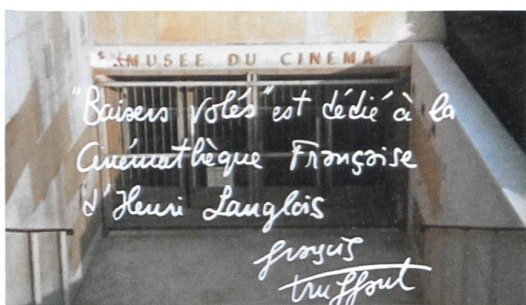 MUSÉE DU CINEMA
"Baisers volés" est dédié à la
Cinémathèque Française
d'Henri Langlois
françois
truffaut